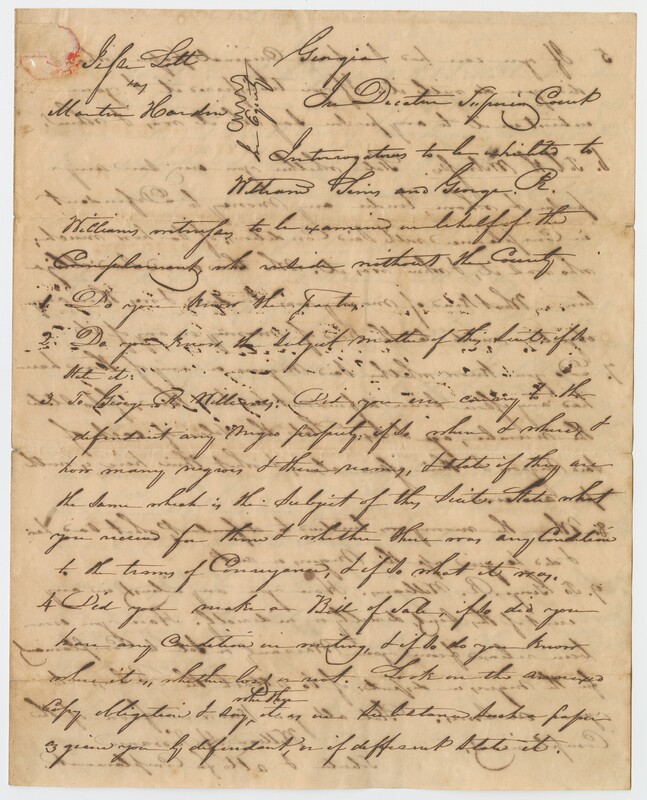 Jesse Lott
vs
Martin Hardin
In Equity
Georgia
In Decatur Superior Court
Interrogatories to be exhibited to
William Sims and George R.
Williams witnesses to be examined in behalf of the
Complainant who resides without the County.
1 Do you know the Parties
2. Do you know the subject matter of this Suit, if so
State it.
3. To George R. Williams. Did you ever convey to the
defendant any Negro property, if so when & where, &
how many negroes & there names, & state if they are
the same which is the Subject of this Suit. State what
you received for them & whether there was any Condition
to the terms of Conveyance, & if so what it was.
4 Did you make a Bill of Sale, if so did you
have any Condition in writing, & if so do you know
where it is, whether lost or not. Look on the annexed
Copy obligation & say whether it is in Substance such a paper
as given you by defendant or if different State it.